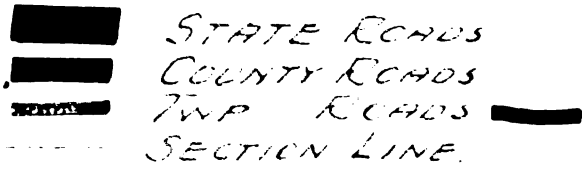 STATE ROADS
COUNTY ROADS
TWP ROADS
SECTION LINE.